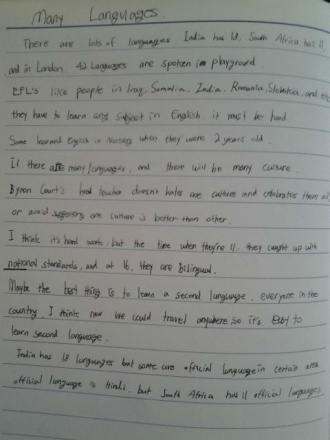 Many Languages.
There are lots of languages India has 18, South Africa has 11,
and in London, 42 languages are spoken in playground.
EFL's like people in Iraq, Somalia, India, Romania, Slovakia, and
they have to learn any subject in English, it must be hard
Some learned English in Nursery when they were 2 years old.
If there are many languages, and there will be many culture.
Byron Court's head teacher doesn't hates one culture and celebrates them all
or avoid one culture is better than other.
I think it's hard work, but the time when they're 11, they caught up with
national standards, and at 16, they are bilingual.
Maybe the best thing is to learn a second language, everyone in the
country. I think now we could travel anywhere so it's easy to
learn second language.
India has 18 languages but some are official language in certain area
official language is Hindi, but South Africa has 11 official languages